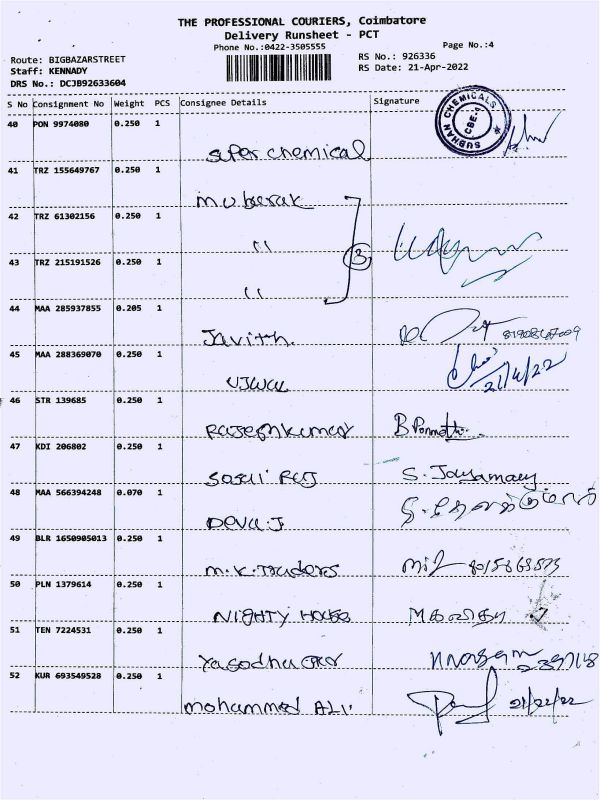 THE PROFESSIONAL COURIERS, Coimbatore
Delivery Runsheet - PCT
Phone No.:0422-3505555
Page No.:4
Route: BIGBAZARSTREET
RS No.: 926336
Staff: KENNADY
RS Date: 21-Apr-2022
DRS No.: DCJB92633604
S No Consignment No Weight PCS Consignee Details Signature
SUBHAN CHEMICALS
CBE-1
40 PON 9974080 0.250 1
super chemical
41 TRZ 155649767 0.250 1
mubarak
42 TRZ 61302156 0.250 1
"
3
43 TRZ 215191526 0.250 1
"
44 MAA 285937855 0.205 1
Javith.
45 MAA 288369070 0.250 1
UJWAL
21/4/22
46 STR 139685 0.250 1
Rajeshkumar
47 KDI 206802 0.250 1
S. Jayamary
48 MAA 566394248 0.070 1
Deva.J
49 BLR 1650905013 0.250 1
M.K.Traders
50 PLN 1379614 0.250 1
NIGHTY HOUSE
51 TEN 7224531 0.250 1
52 KUR 693549528 0.250 1
mohammed ALI.